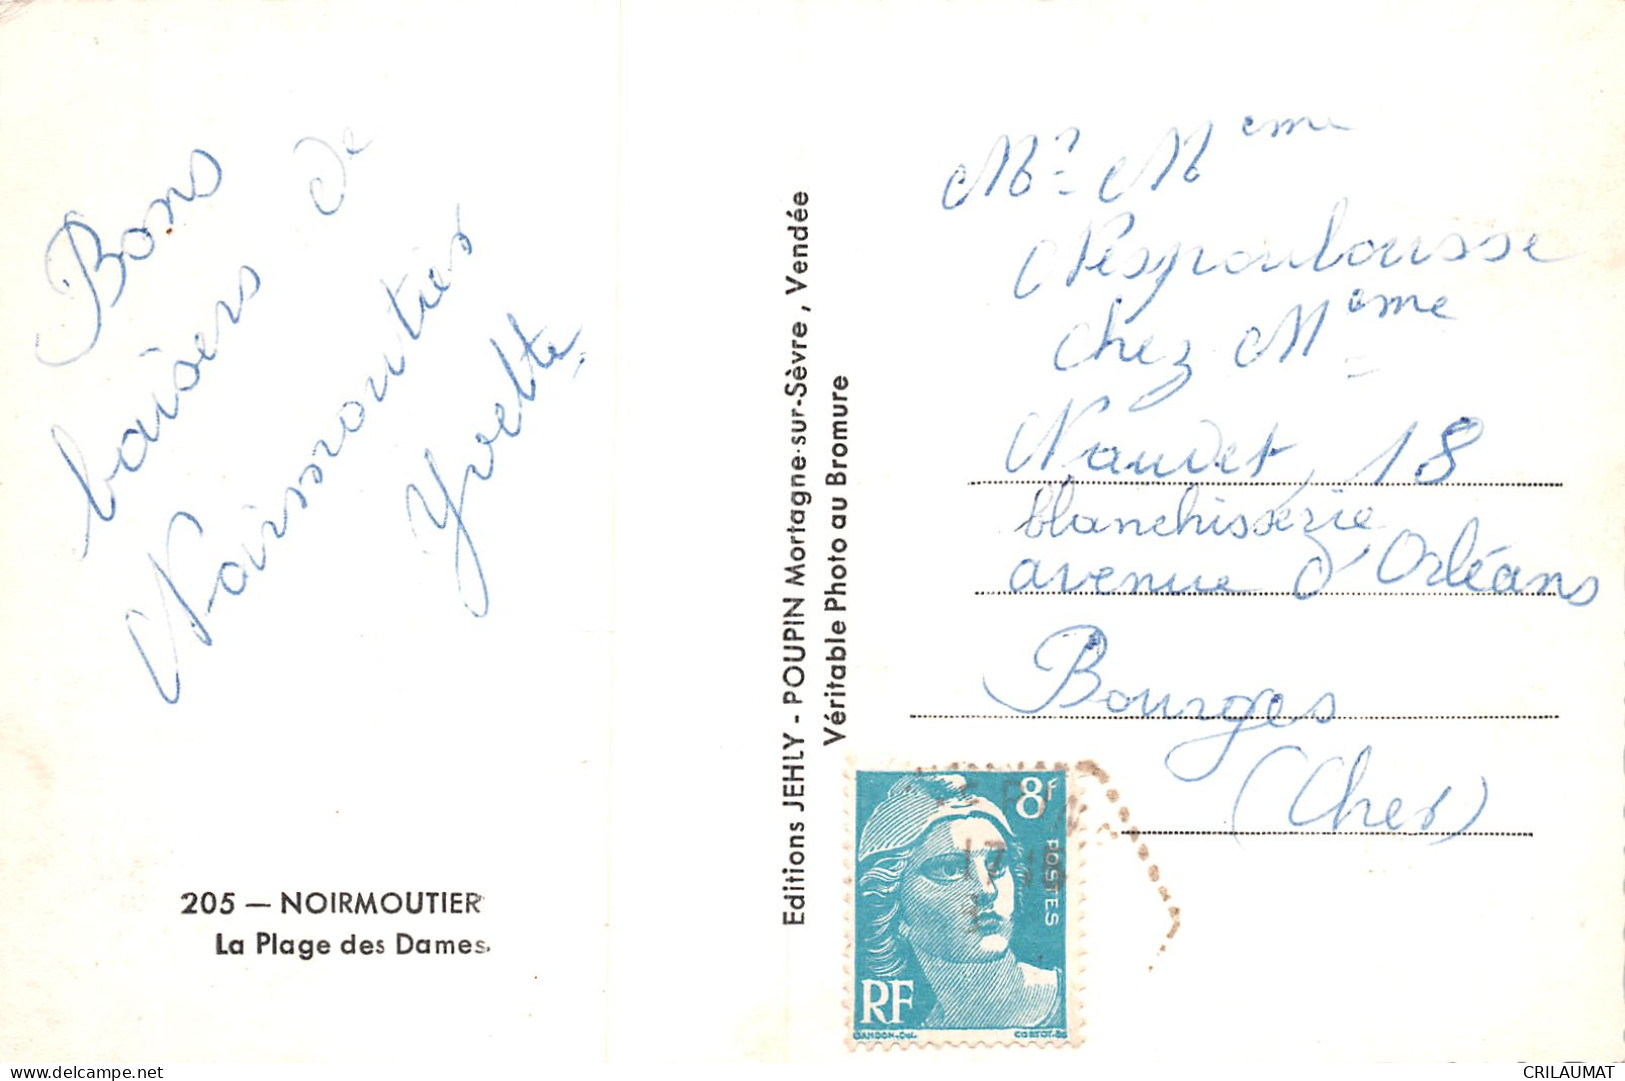 Bons
baisers de
Noirmoutier
Yvette.
205 — NOIRMOUTIER
La Plage des Dames.
Editions JEHLY - POUPIN Mortagne-sur-Sèvre, Vendée
Véritable Photo au Bromure
Mr Meme
Nespoulousse
chez Meme
Naudet, 18
blanchisserie
avenue d'Orléans
Bourges
(Cher)
8F
POSTES
RF
GANDON-Del.
CORTOT-SC
17 18
CRILAUMAT